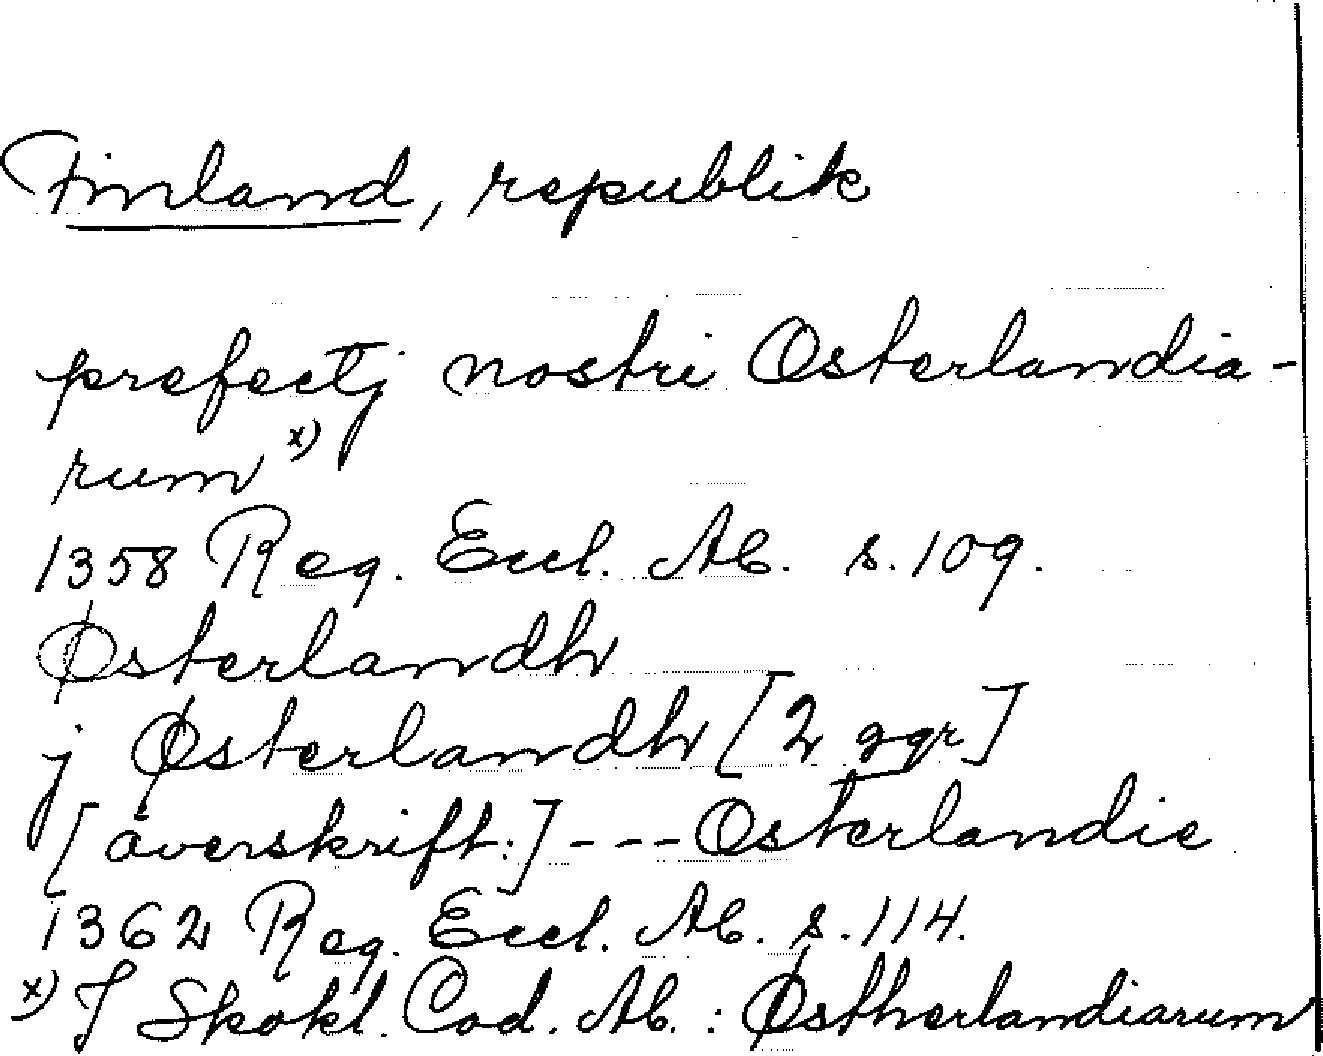 Finland, republik
prefectj nostri Osterlandia-
rum x)
1358 Reg. Eccl. Ab. s. 109.
Østerlandh
j Østerlandh [2 ggr]
[överskrift:] --- Osterlandie
1362 Reg. Eccl. Ab. s. 114.
x) J Skokl. Cod. Ab. : Østherlandiarum